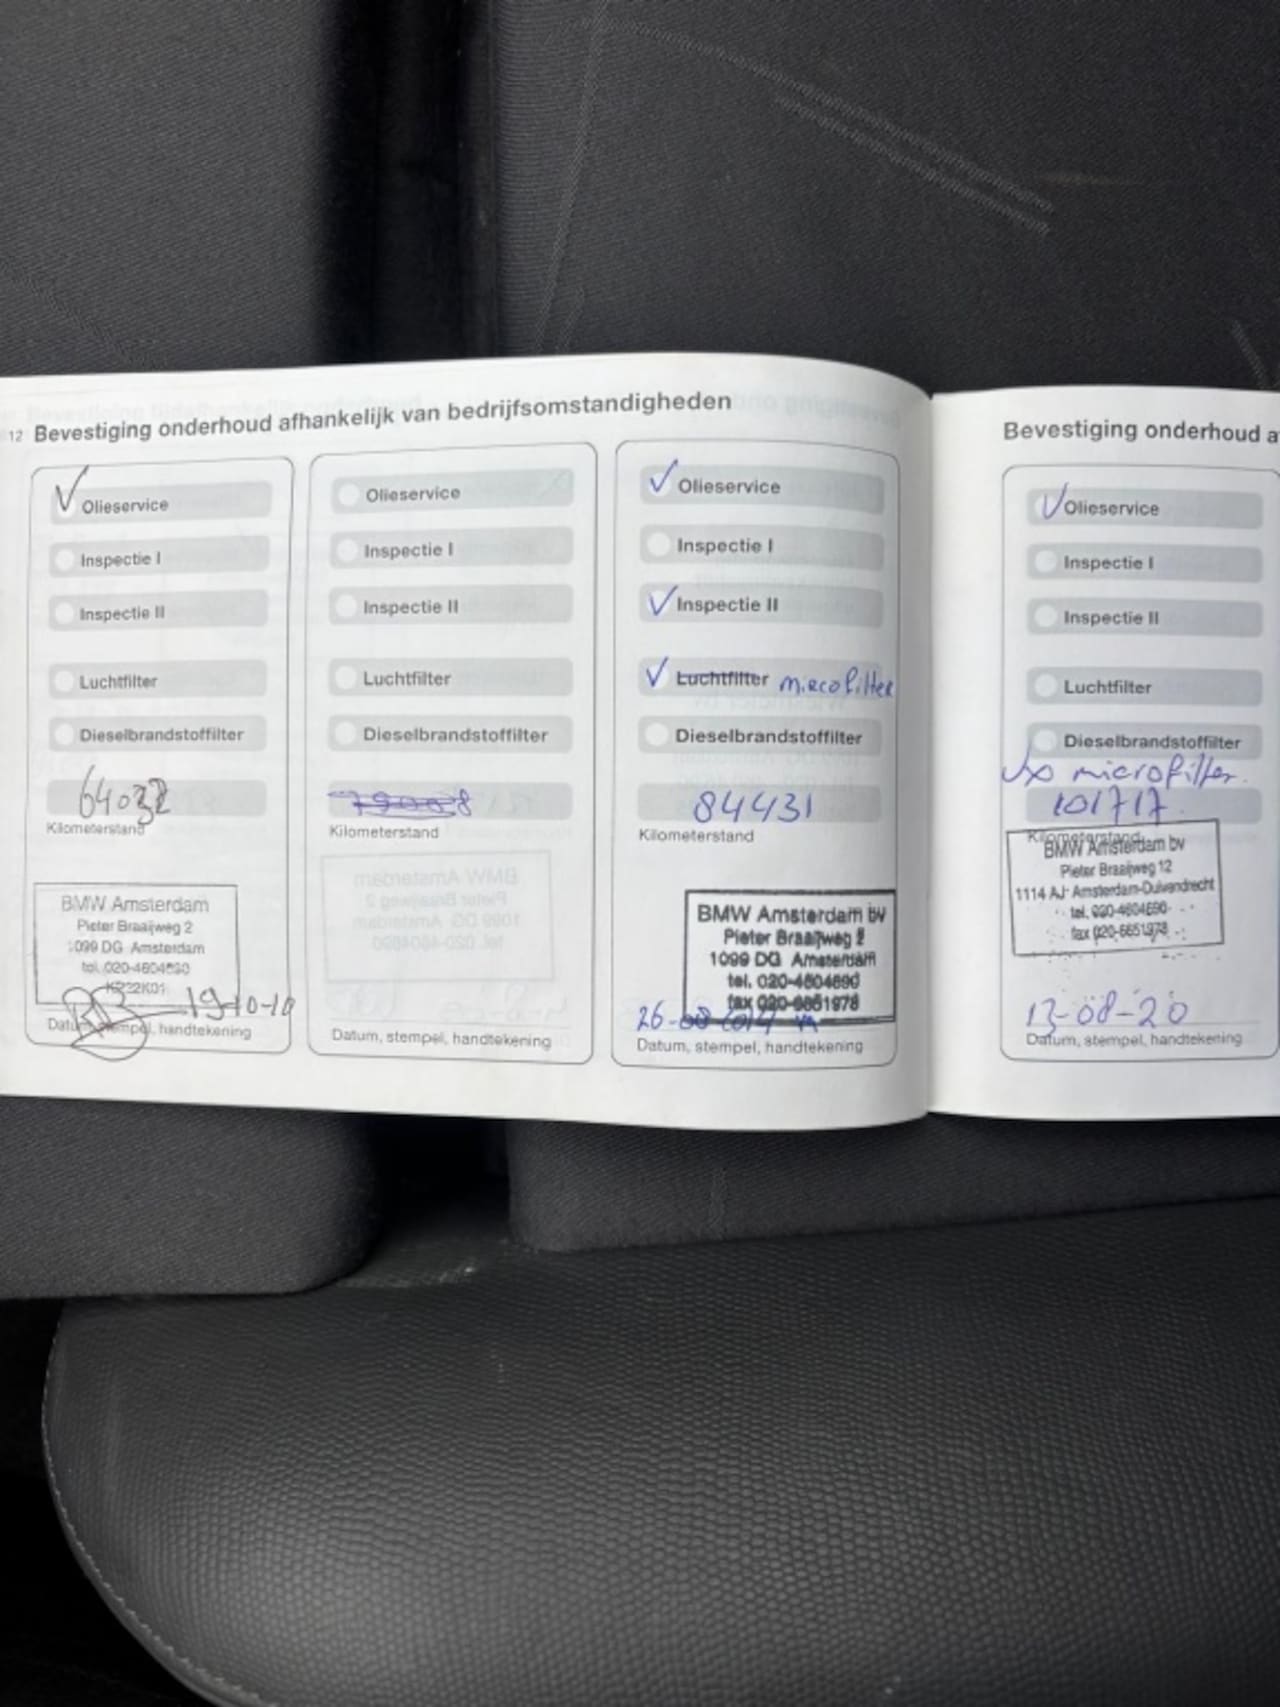 12 Bevestiging onderhoud afhankelijk van bedrijfsomstandigheden
Olieservice
Inspectie I
Inspectie II
Luchtfilter
Dieselbrandstoffilter
64032
Kilometerstand
BMW Amsterdam
Pieter Braaijweg 2
1099 DG Amsterdam
tel. 020-4604690
19-10-10
Datum, stempel, handtekening
Olieservice
Inspectie I
Inspectie II
Luchtfilter
Dieselbrandstoffilter
Kilometerstand
Datum, stempel, handtekening
Olieservice
Inspectie I
Inspectie II
Luchtfilter microfilter
Dieselbrandstoffilter
84431
Kilometerstand
BMW Amsterdam bv
Pieter Braaijweg 2
1099 DG Amsterdam
tel. 020-4604690
fax 020-6651978
26-08
Datum, stempel, handtekening
Bevestiging onderhoud a
Olieservice
Inspectie I
Inspectie II
Luchtfilter
Dieselbrandstoffilter
microfilter.
101717
Kilometerstand
BMW Amsterdam bv
Pieter Braaijweg 12
1114 AJ Amsterdam-Duivendrecht
tel. 020-4604690
fax 020-6651978
13-08-20
Datum, stempel, handtekening